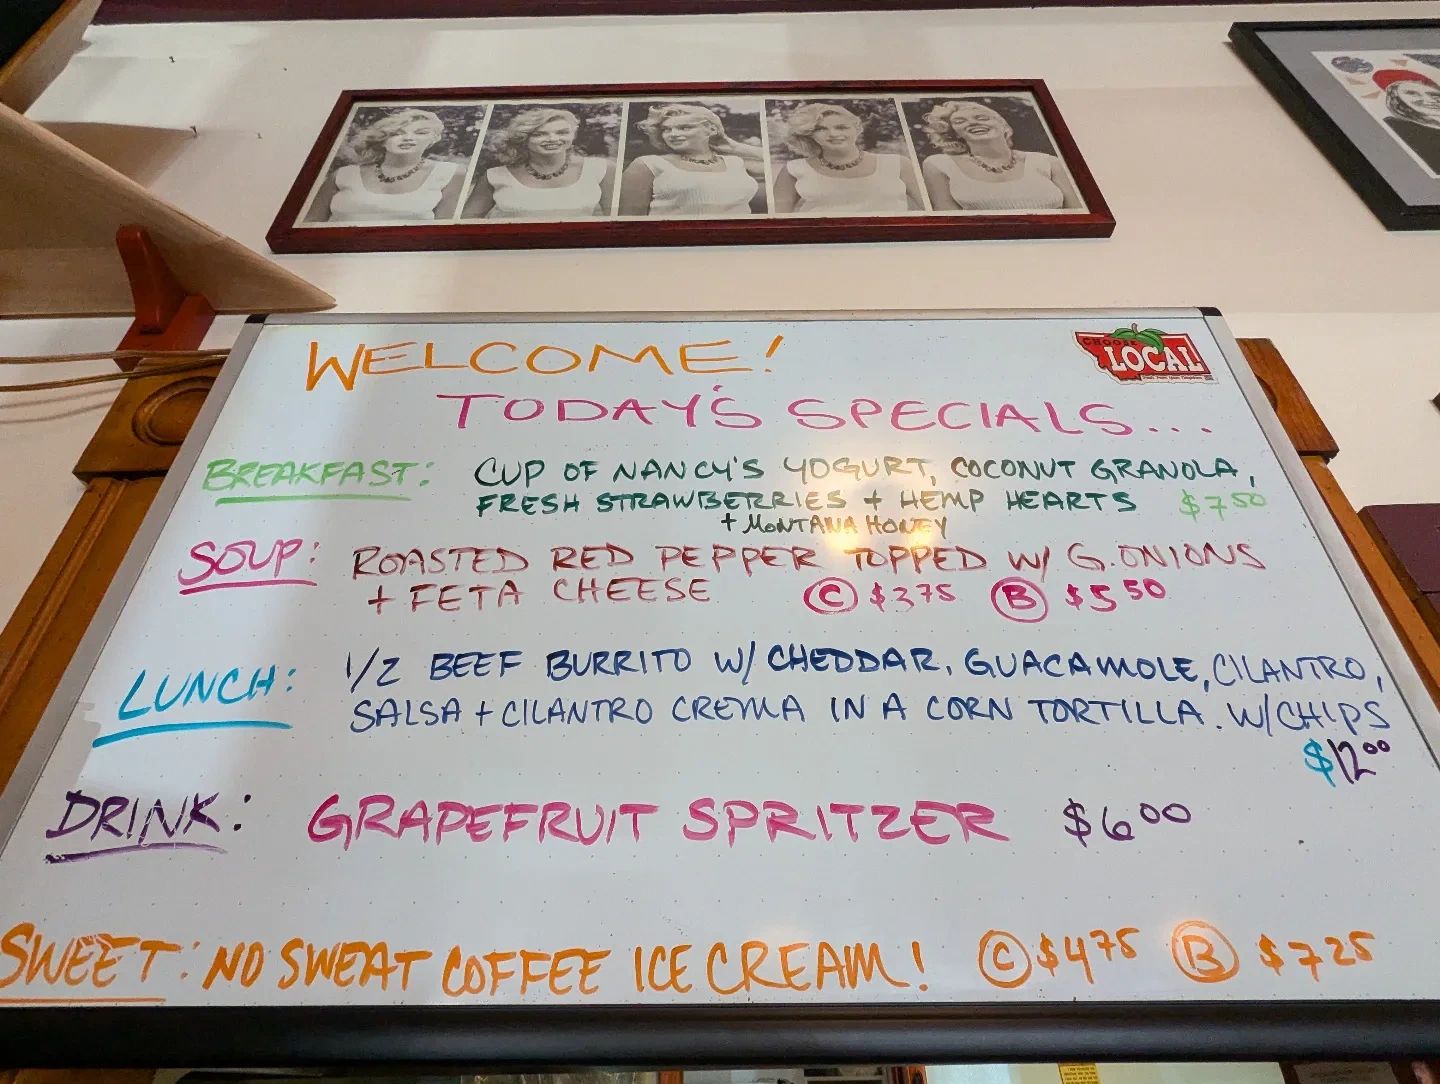 WELCOME!
CHOOSE
LOCAL
TODAY'S SPECIALS...
BREAKFAST: CUP OF NANCY'S YOGURT, COCONUT GRANOLA,
FRESH STRAWBERRIES + HEMP HEARTS $7.50
+ MONTANA HONEY
SOUP: ROASTED RED PEPPER TOPPED W/ G. ONIONS
+ FETA CHEESE C $3.75 B $5.50
LUNCH: 1/2 BEEF BURRITO W/ CHEDDAR, GUACAMOLE, CILANTRO,
SALSA + CILANTRO CREMA IN A CORN TORTILLA. W/ CHIPS
$12.00
DRINK: GRAPEFRUIT SPRITZER $6.00
SWEET: NO SWEAT COFFEE ICE CREAM! C $4.75 B $7.25